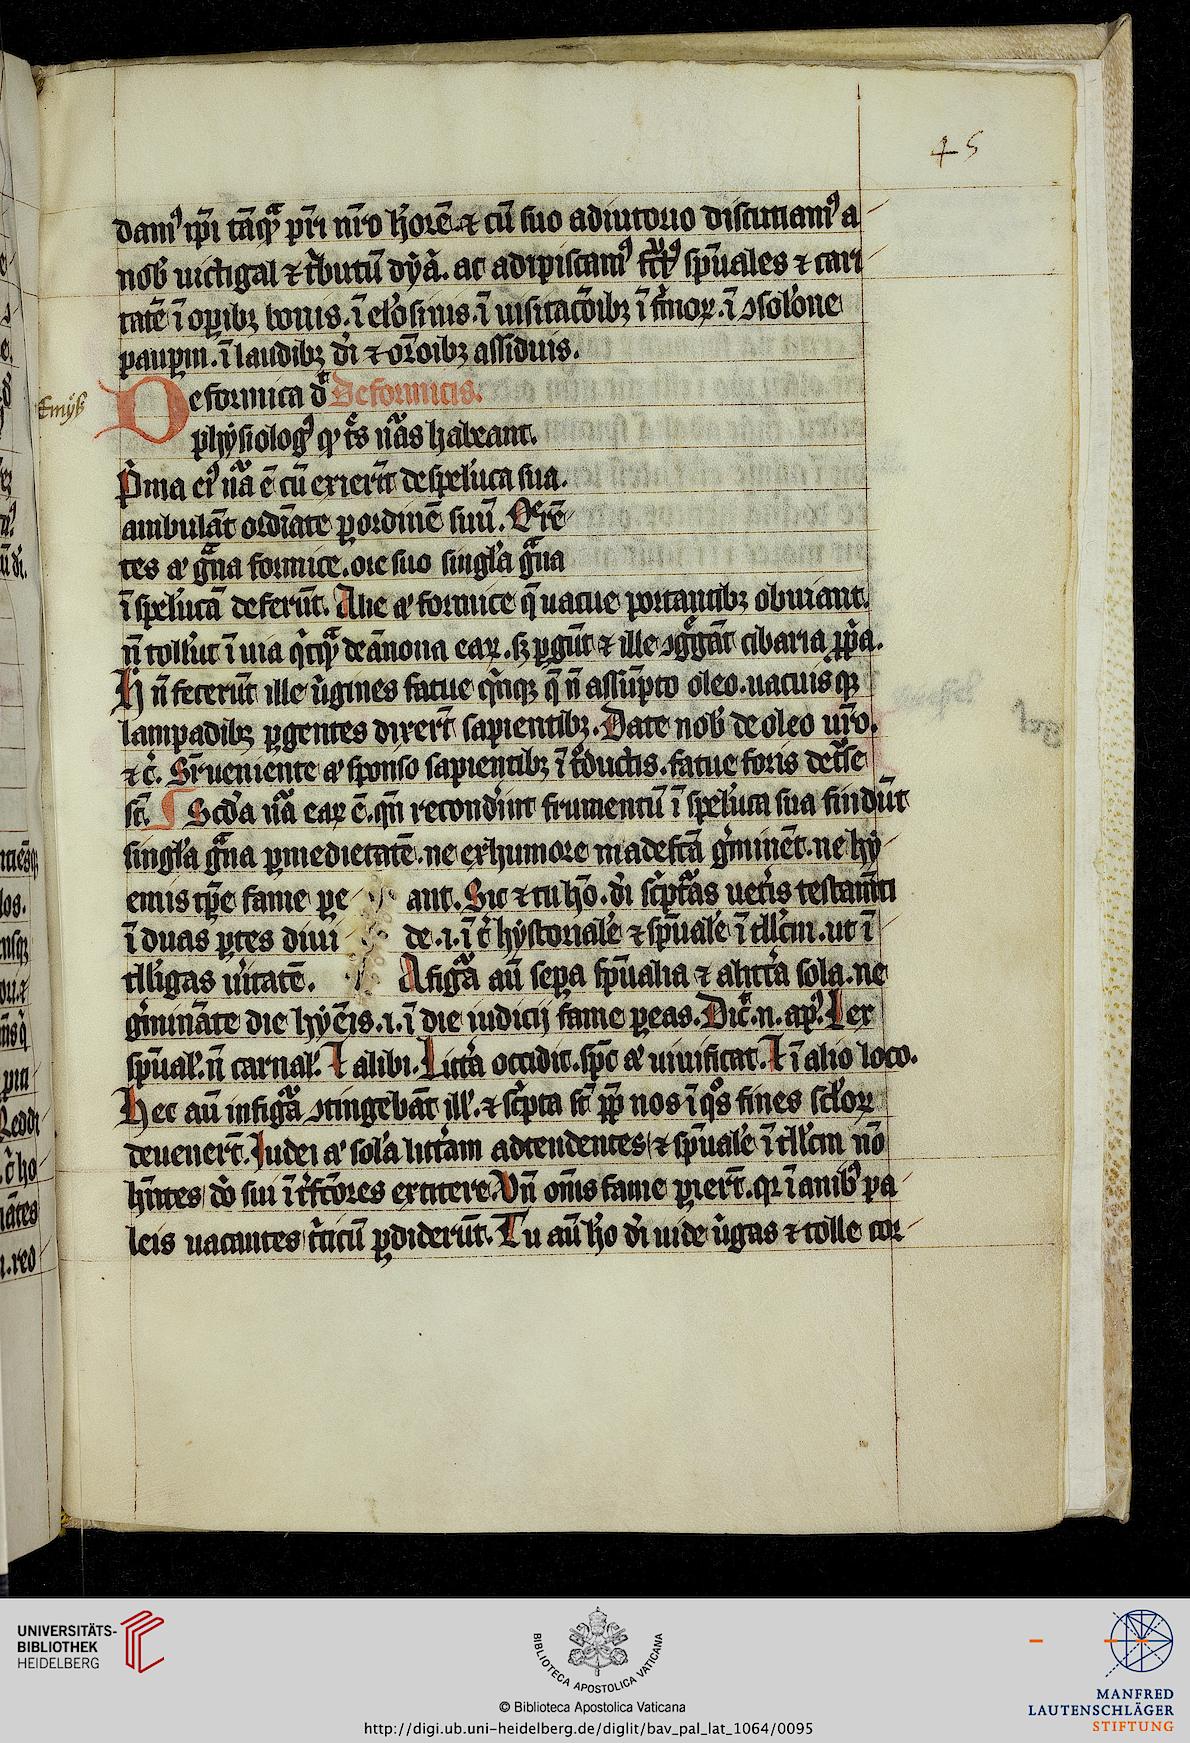 45
damꝰ ip̄i tāqͣꝫ pr̄i nr̄o hōrē ⁊ cū suo adiutorio discutiamꝰ a
nob̄ uictigal ⁊ tͥbutū dyā. ac adipiscamꝰ fͥctꝰ spūales ⁊ cari
tatē ī oꝑibꝫ bonis. ī elōsinis. ī uisitacōibꝫ ī fͥmoꝝ. ī ꝯsolōne
pauꝑm. ī laudibꝫ dī ⁊ or̄oibꝫ assiduis.
De formica dt̄ De formicis.
Emyß
physiologꝰ qꝫ tͤs nāͣs habeant.
Pͥma eiꝰ nāͣ ē cū exierīt de spelūca sua.
ambulāt ordīate ꝑ ordinē suū. Q̄rē
tes aͭ gͣna formice. ore suo singl̄a gͣna
ī spelūcā deferūt. Alie aͭ formice q̄ uacue portantibꝫ obuiant.
n̄ tollūt ī uia qͥcqͣꝫ de ānona eaꝝ. sꝫ ꝑgūt ⁊ ille ꝯgͤgāt cibaria ꝓpͥa.
H̄ n̄ fecerūt ille uͥgines fatue qͥnqꝫ q̄ n̄ assūpto oleo. uacuisqꝫ
lampadibꝫ ꝑgentes dixerт̄ sapientibꝫ. Date nob̄ de oleo ur̄o.
⁊ c̄. Sr̄ueniente aͭ sponso sapientibꝫ ītͦductis. fatue foris detͥse
st̄. Scd̄a nāͣ eaꝝ ē. qn̄ recondūt frumentū ī spelūca sua findūt
singl̄a gͣna ꝑ medietatē. ne ex humore madefcā gͥminēt. ne hy
emis tp̄e fame ꝑe ant. Sic ⁊ tu hō. dī scͥptͣas uetīs testamīti
ī duas ꝑtes diui de .i. īt̄ hystoriale ⁊ spūale ītll̄cm. ut ī
tll̄igas uītatē. A figͣa aū seꝑa spūalia ⁊ a lit̄ra sola. ne
gͥmināte die hyēis .i. ī die iudicij fame ꝑeas. Dic̄ .n. apꝰ. Lex
spūal̄. n̄ carnal̄. ⁊ alibi. Litt̄a occidit. spc̄ aͭ uiuificat. ⁊ ī alio loco.
Hec aū in figͣa ꝯtingebāt ill̄. ⁊ scͥpta st̄ ꝓp̄ nos ī qͦs fines scl̄oꝝ
deuenerт̄. Iudei aͭ sola litt̄am adtendentes ⁊ spūale ītll̄cm nō
hn̄tes dō sui īt̄fcōres extitere. Vn̄ om̄s fame ꝑierт̄. qꝛ īanibꝰ pa
leis uacantes tͥticū ꝑdiderūt. Tu aū hō dī uide uͥgas ⁊ tolle cor
UNIVERSITÄTS-
BIBLIOTHEK
HEIDELBERG
BIBLIOTECA APOSTOLICA VATICANA
© Biblioteca Apostolica Vaticana
http://digi.ub.uni-heidelberg.de/diglit/bav_pal_lat_1064/0095
MANFRED
LAUTENSCHLÄGER
STIFTUNG